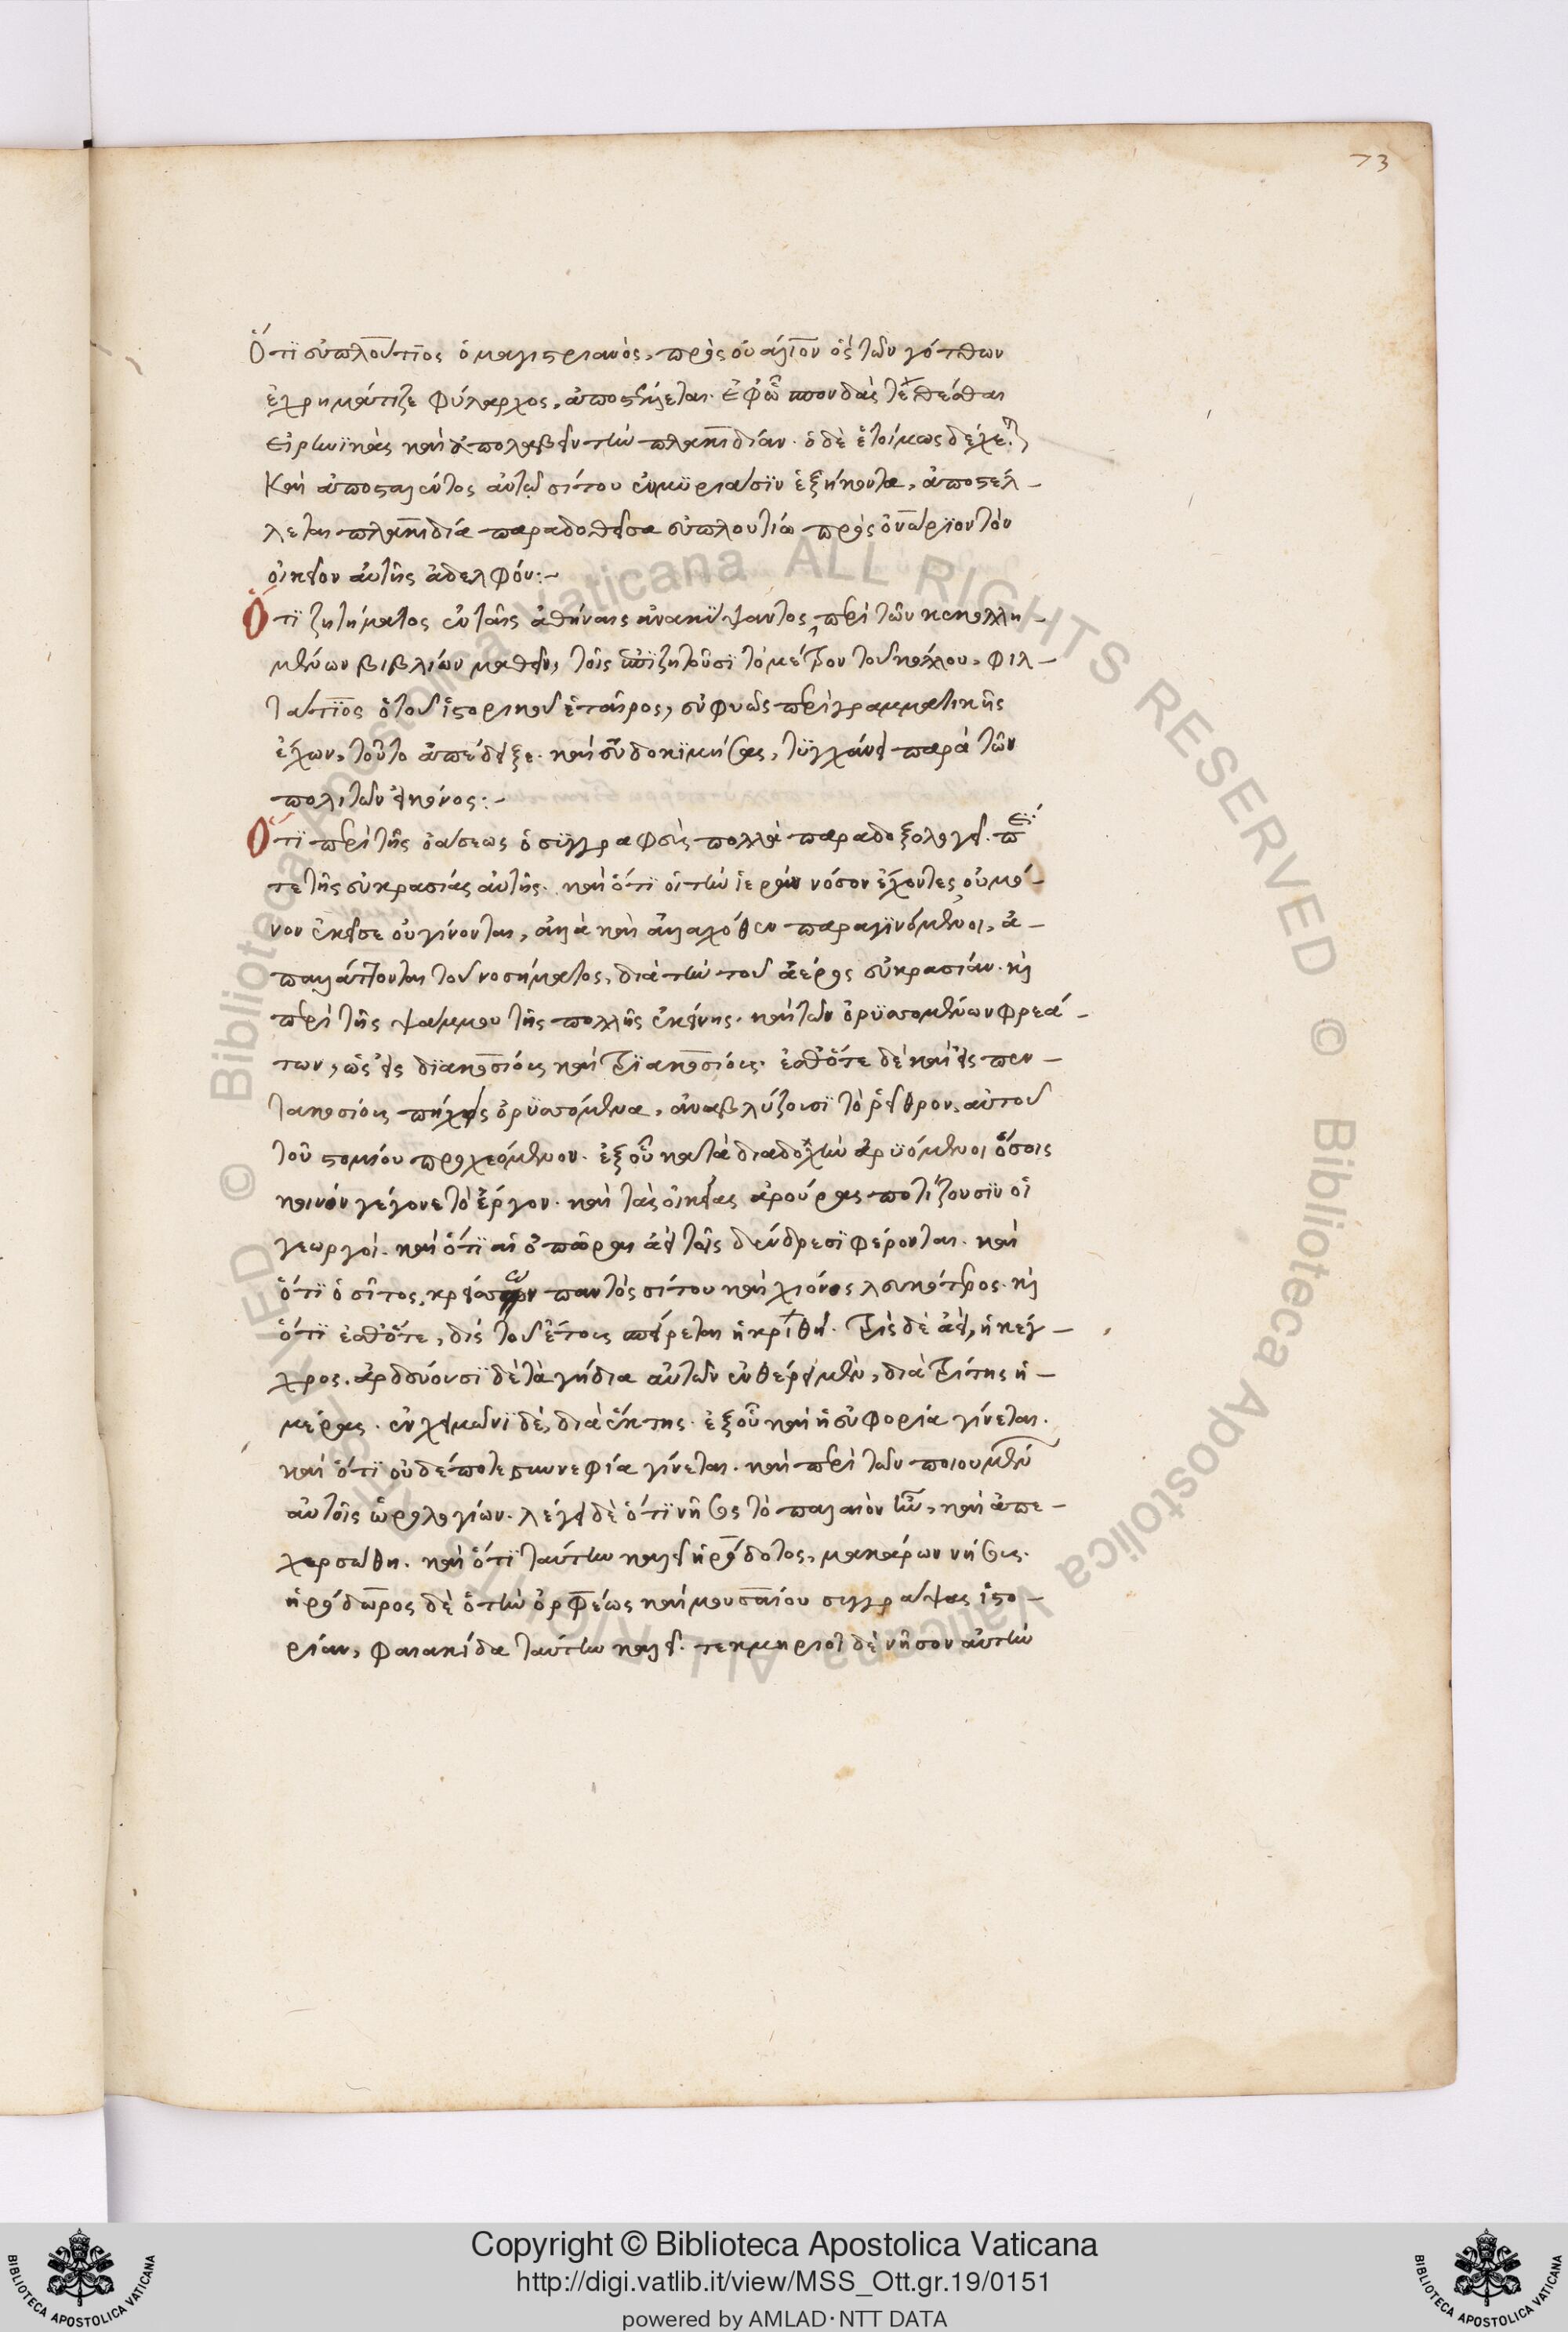 73
Ὅτι εὐπλούτιος ὁ μαγιστριανὸς, πρὸς οὐάλιον ὃς τῶν γότθων
ἐχρημάτιζε φύλαρχος, ἀποστέλλεται. ἐφ' ᾧ σπονδάς τε θέσθαι
εἰρηνικὰς καὶ ἀπολαβεῖν τὴν πλακιδίαν. ὁ δὲ ἑτοίμως δέχεται
καὶ ἀποσταλέντος αὐτῷ σίτου ἐν μυριάσιν ἑξήκοντα, ἀποστέλ-
λεται πλακιδία παραδοθεῖσα εὐπλουτίῳ πρὸς ὀνώριον τὸν
οἰκεῖον αὐτῆς ἀδελφόν:-
Ὅτι ζητήματος ἐν ταῖς ἀθήναις ἀνακύψαντος, περὶ τῶν κεκολλη-
μένων βιβλίων μαθεῖν, τοῖς ἐπιζητοῦσι τὸ μέτρον τοῦ κόλλου. φιλ-
τάτιος ὁ τοῦ ἱστορικοῦ ἑταῖρος, εὐφυῶς περὶ γραμματικῆς
ἔχων, τοῦτο ἀπέδειξε. καὶ εὐδοκιμήσας, τυγχάνει παρὰ τῶν
πολιτῶν εἰκόνος:-
Ὅτι περὶ τῆς ὀάσεως ὁ συγγραφεὺς πολλὰ παραδοξολογεῖ. περί
τε τῆς εὐκρασίας αὐτῆς. καὶ ὅτι οἱ τὴν ἱερὰν νόσον ἔχοντες οὐ μό-
νον ἐκεῖσε οὐ γίνονται, ἀλλὰ καὶ ἀλλαχόθεν παραγινόμενοι, ἀ-
παλλάττονται τοῦ νοσήματος, διὰ τὴν τοῦ ἀέρος εὐκρασίαν. καὶ
περὶ τῆς ψάμμου τῆς πολλῆς ἐκείνης. καὶ τῶν ὀρυσσομένων φρεά-
των, ὡς εἰς διακοσίους καὶ τριακοσίους. ἐσθ' ὅτε δὲ καὶ εἰς πεν-
τακοσίους πήχεις ὀρυσσόμενα, ἀναβλύζουσι τὸ ῥεῖθρον, αὐτοῦ
τοῦ στομίου προχεόμενον. ἐξ οὗ κατὰ διαδοχὴν ἀρυόμενοι ὅσοις
κοινὸν γέγονε τὸ ἔργον. καὶ τὰς οἰκείας ἀρούρας ποτίζουσιν οἱ
γεωργοί. καὶ ὅτι αἱ ὀπῶραι ἀεὶ τοῖς δένδρεσι φέρονται. καὶ
ὅτι ὁ σῖτος, κρείσσων παντὸς σίτου καὶ χιόνος λευκότερος. καὶ
ὅτι ἐσθ' ὅτε, δὶς τοῦ ἔτους σπείρεται ἡ κριθή. τρὶς δὲ ἀεὶ, ἡ κέγ-
χρος. ἀρδεύουσι δὲ τὰ γήδια αὐτῶν ἐν θέρει μὲν, διὰ τρίτης ἡ-
μέρας. ἐν χειμῶνι δὲ, διὰ ἕκτης. ἐξ οὗ καὶ ἡ εὐφορία γίνεται.
καὶ ὅτι οὐδέποτε συννεφία γίνεται. καὶ περὶ τῶν ποιουμένων
αὐτοῖς ὡρολογίων. λέγει δὲ ὅτι νῆσος τὸ παλαιὸν ἦν, καὶ ἀπε-
χερσώθη. καὶ ὅτι ταύτην καλεῖ ἡρόδοτος, μακάρων νήσους.
ἡρόδωρος δὲ ὁ τὴν ὀρφέως καὶ μουσαίου συγγράψας ἱστο-
ρίαν, φαιακίδα ταύτην καλεῖ. τεκμηριοῖ δὲ νῆσον αὐτὴν
Copyright © Biblioteca Apostolica Vaticana
http://digi.vatlib.it/view/MSS_Ott.gr.19/0151
powered by AMLAD·NTT DATA